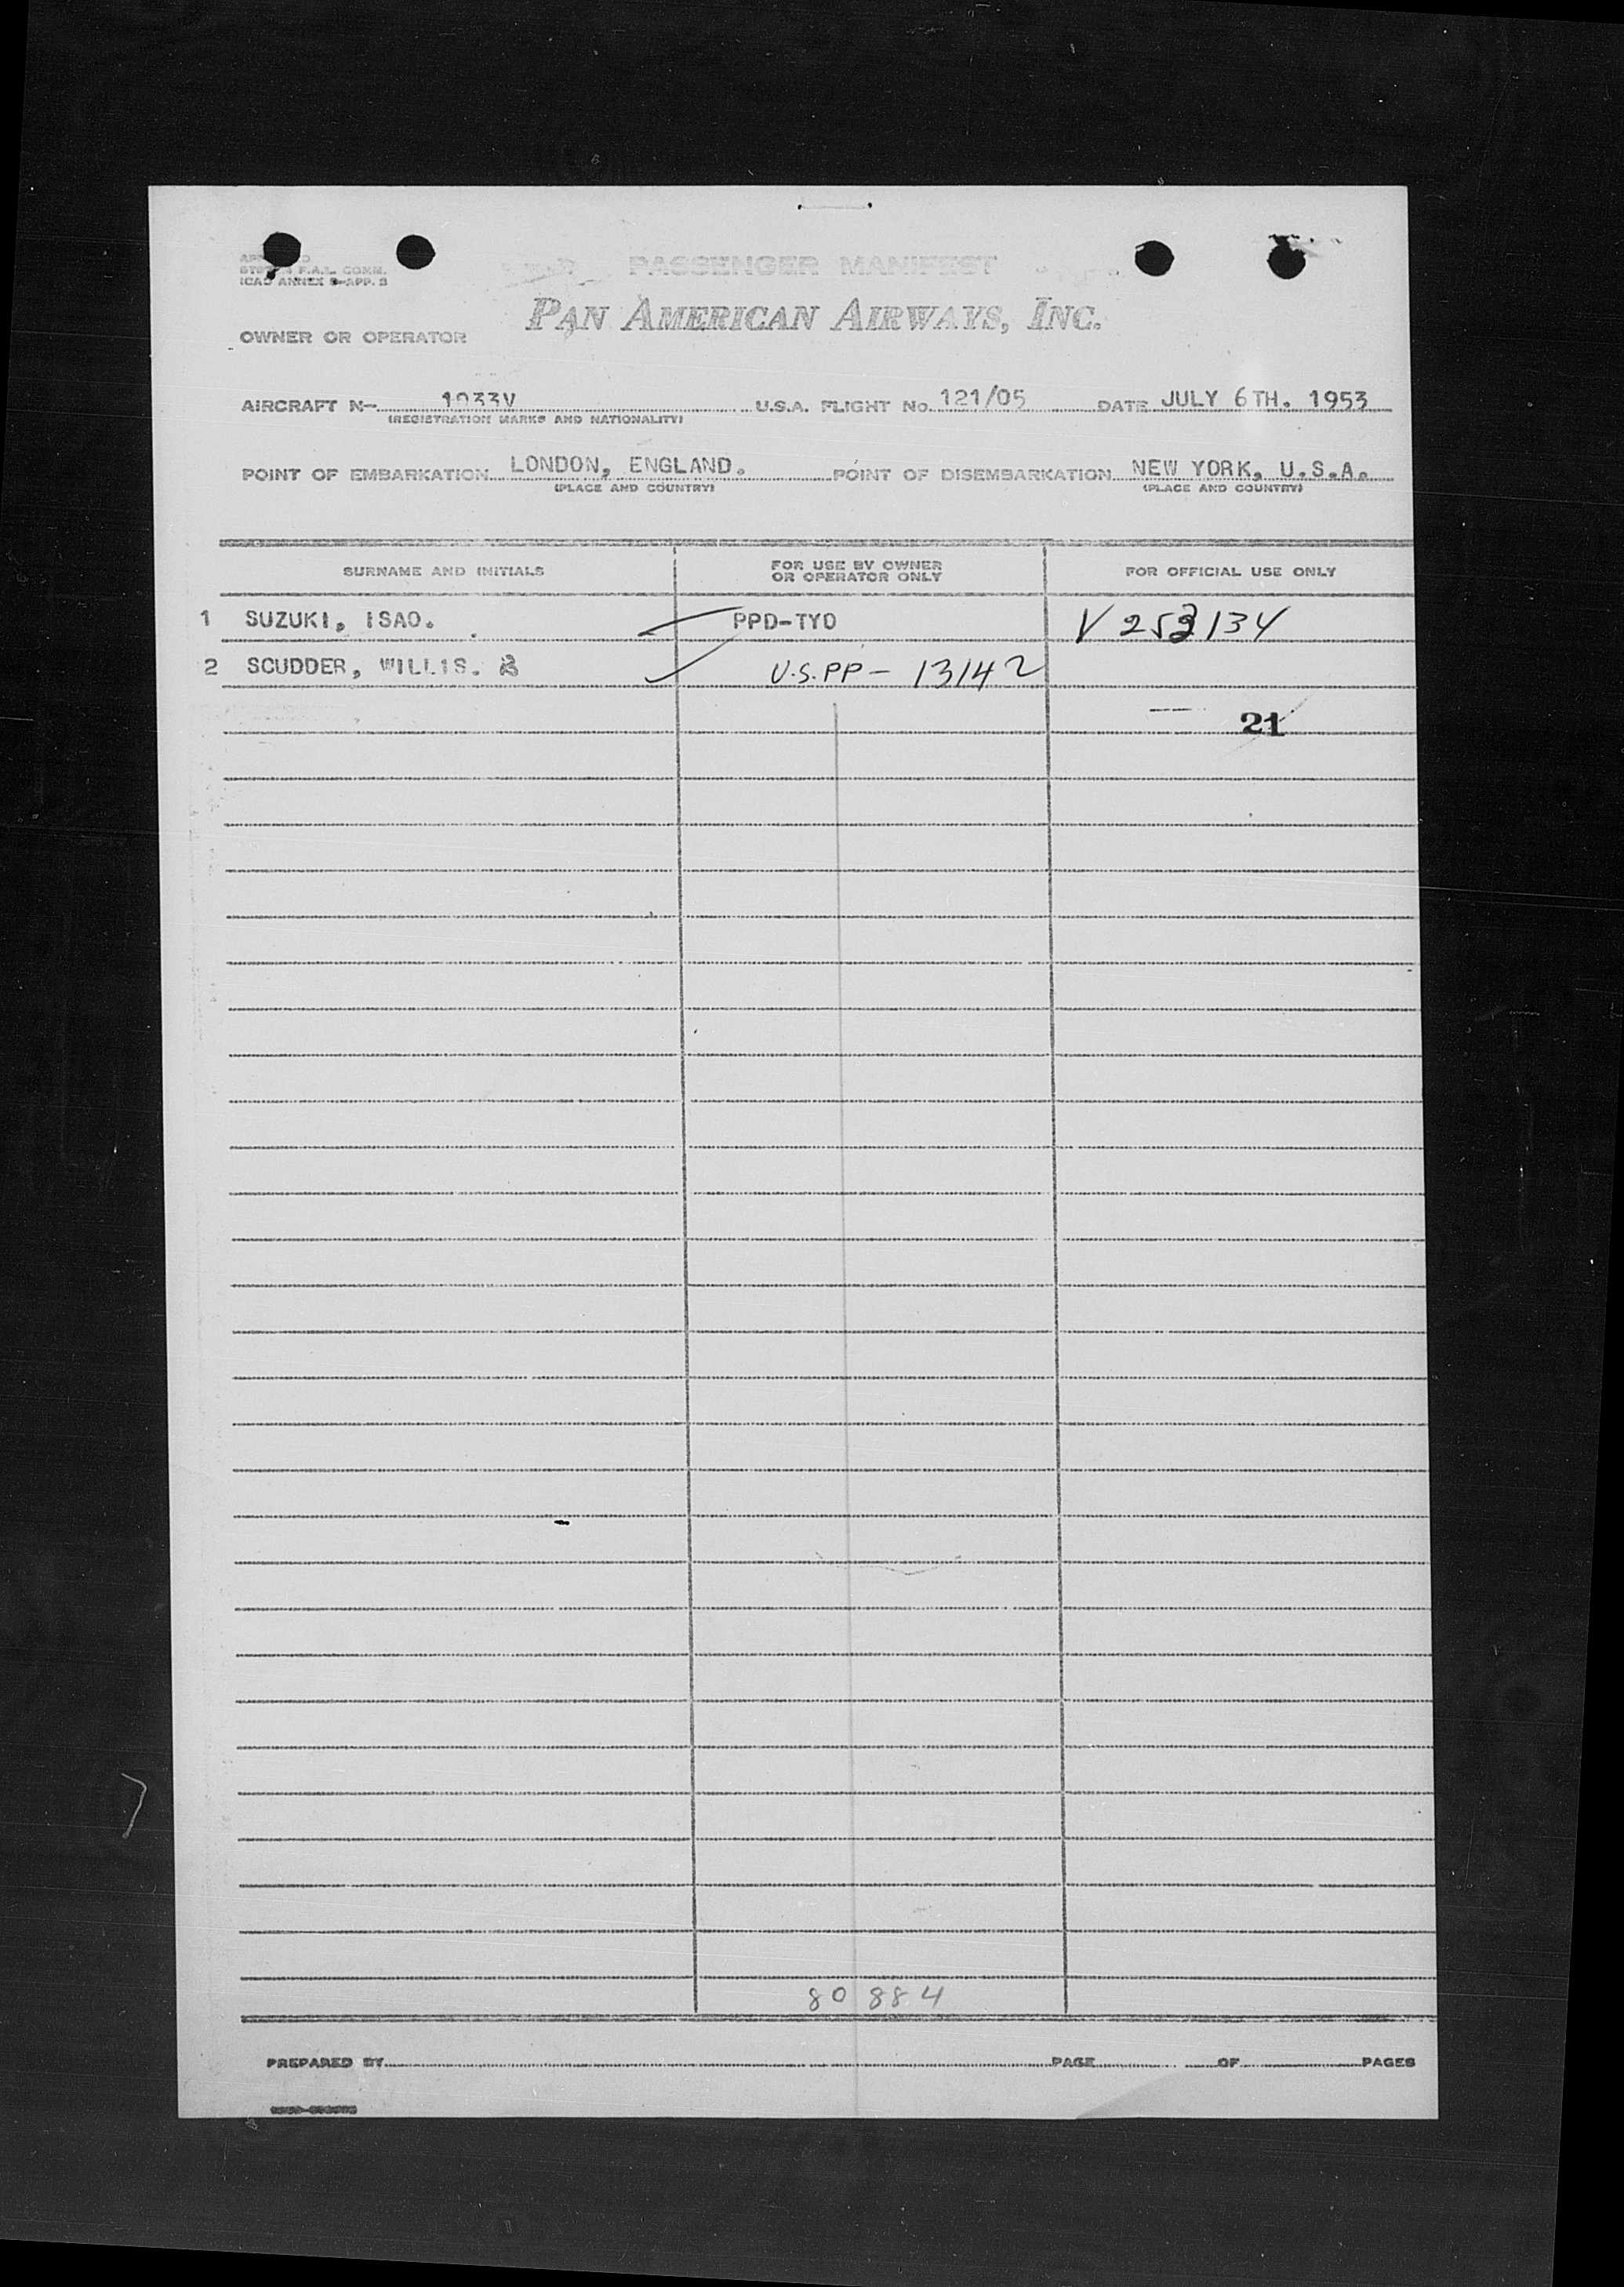 PASSENGER MANIFEST
F.A.L. COMM.
ICAO ANNEX 9-APP. 3
PAN AMERICAN AIRWAYS, INC.
OWNER OR OPERATOR
AIRCRAFT N- 1033V U.S.A. FLIGHT No. 121/05 DATE JULY 6TH. 1953
(REGISTRATION MARKS AND NATIONALITY)
POINT OF EMBARKATION LONDON, ENGLAND. POINT OF DISEMBARKATION NEW YORK, U.S.A.
(PLACE AND COUNTRY) (PLACE AND COUNTRY)
SURNAME AND INITIALS FOR USE BY OWNER OR OPERATOR ONLY FOR OFFICIAL USE ONLY
1 SUZUKI, ISAO. PPD-TYO V 253134
2 SCUDDER, WILLIS. U.S.PP- 13142
21
80884
PREPARED BY PAGE OF PAGES